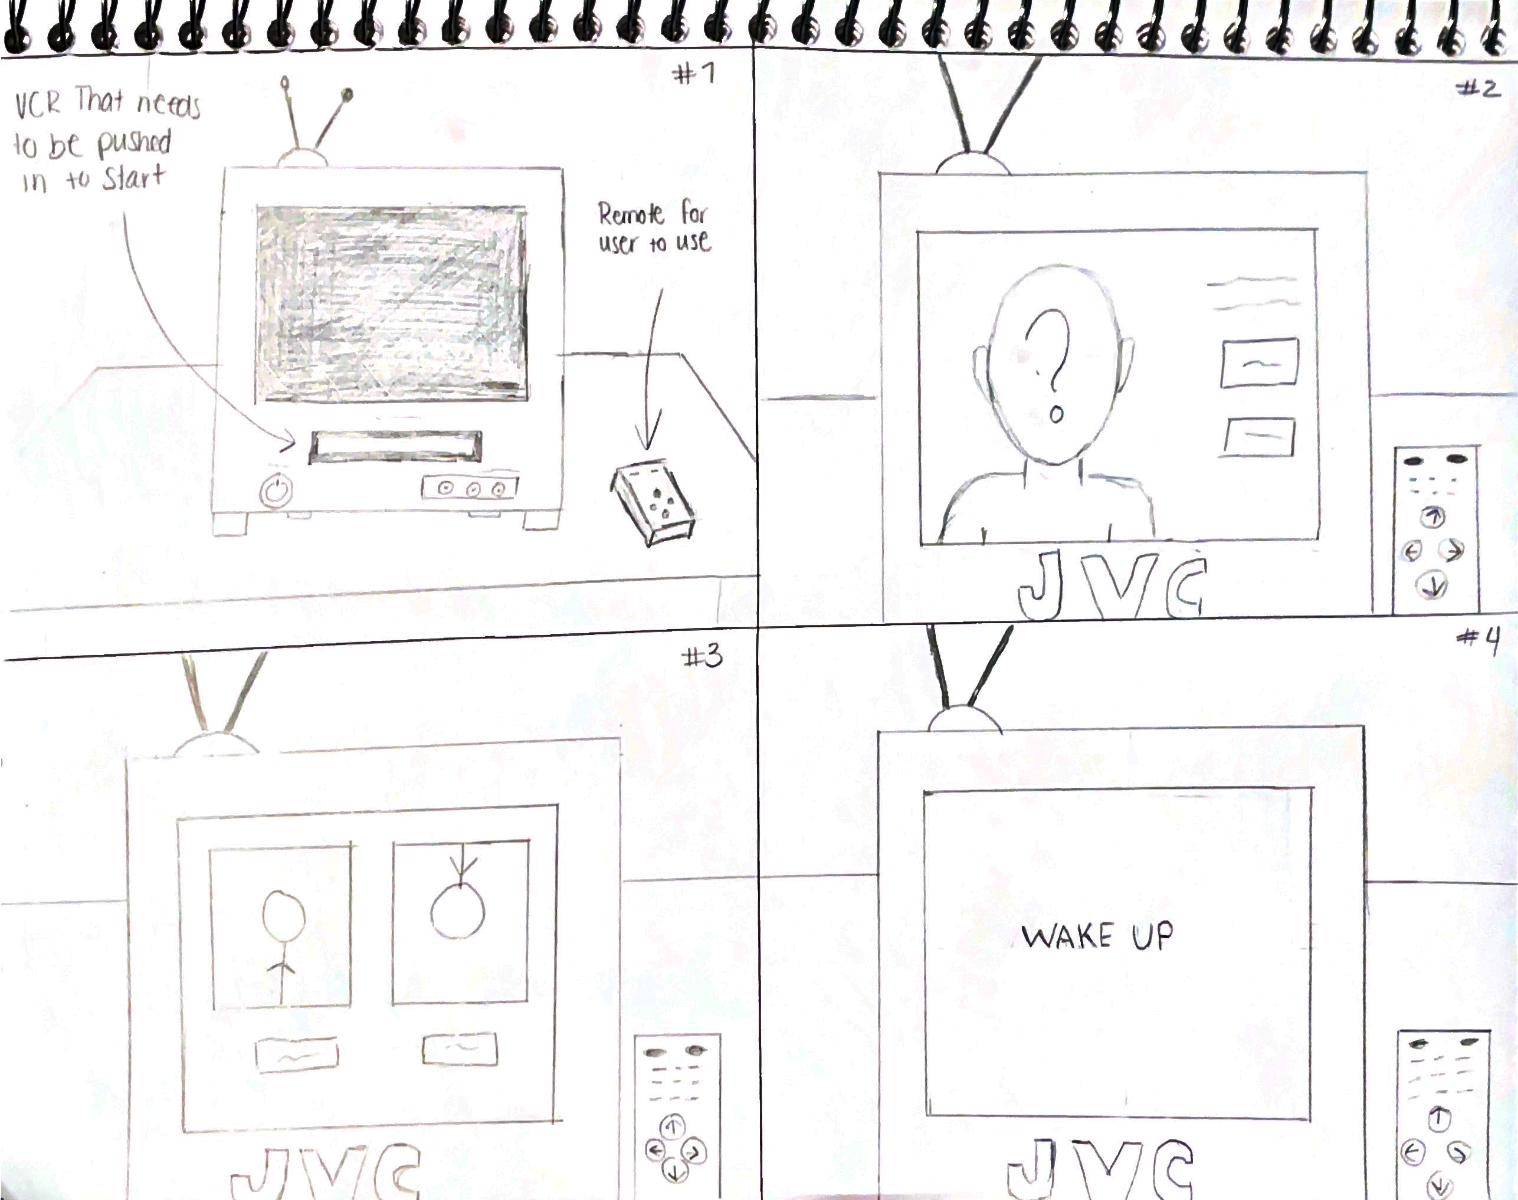 #1
VCR That needs
to be pushed
in to start
Remote for
user to use
#2
?
JVC
#3
JVC
#4
WAKE UP
JVC